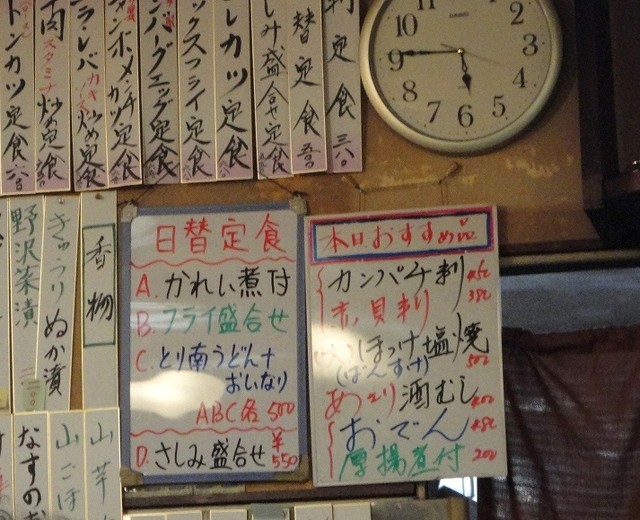 刺定食 三八〇
替定食 五〇〇
しみ盛合せ定食
レカツ定食
ックスフライ定食
バーグエッグ定食
タンポメンチカツ定食
ラレバカキ炒め定食
牛肉スタミナ炒め定食
トンカツ定食
10
11
12
1
2
3
4
5
6
7
8
9
CASIO
香物
きゅうりぬか漬
野沢菜漬
山芋
山ごぼ
なすのお
日替定食
A. かれい煮付
B. フライ盛合せ
C. とり南うどん+
おいなり
ABC各500
D. さしみ盛合せ ¥550
本日おすすめ品
カンパチ刺 450
赤貝刺り 380
ほっけ塩焼 500
(はんすけ)
あさり酒むし 400
おでん 480
厚揚煮付 200